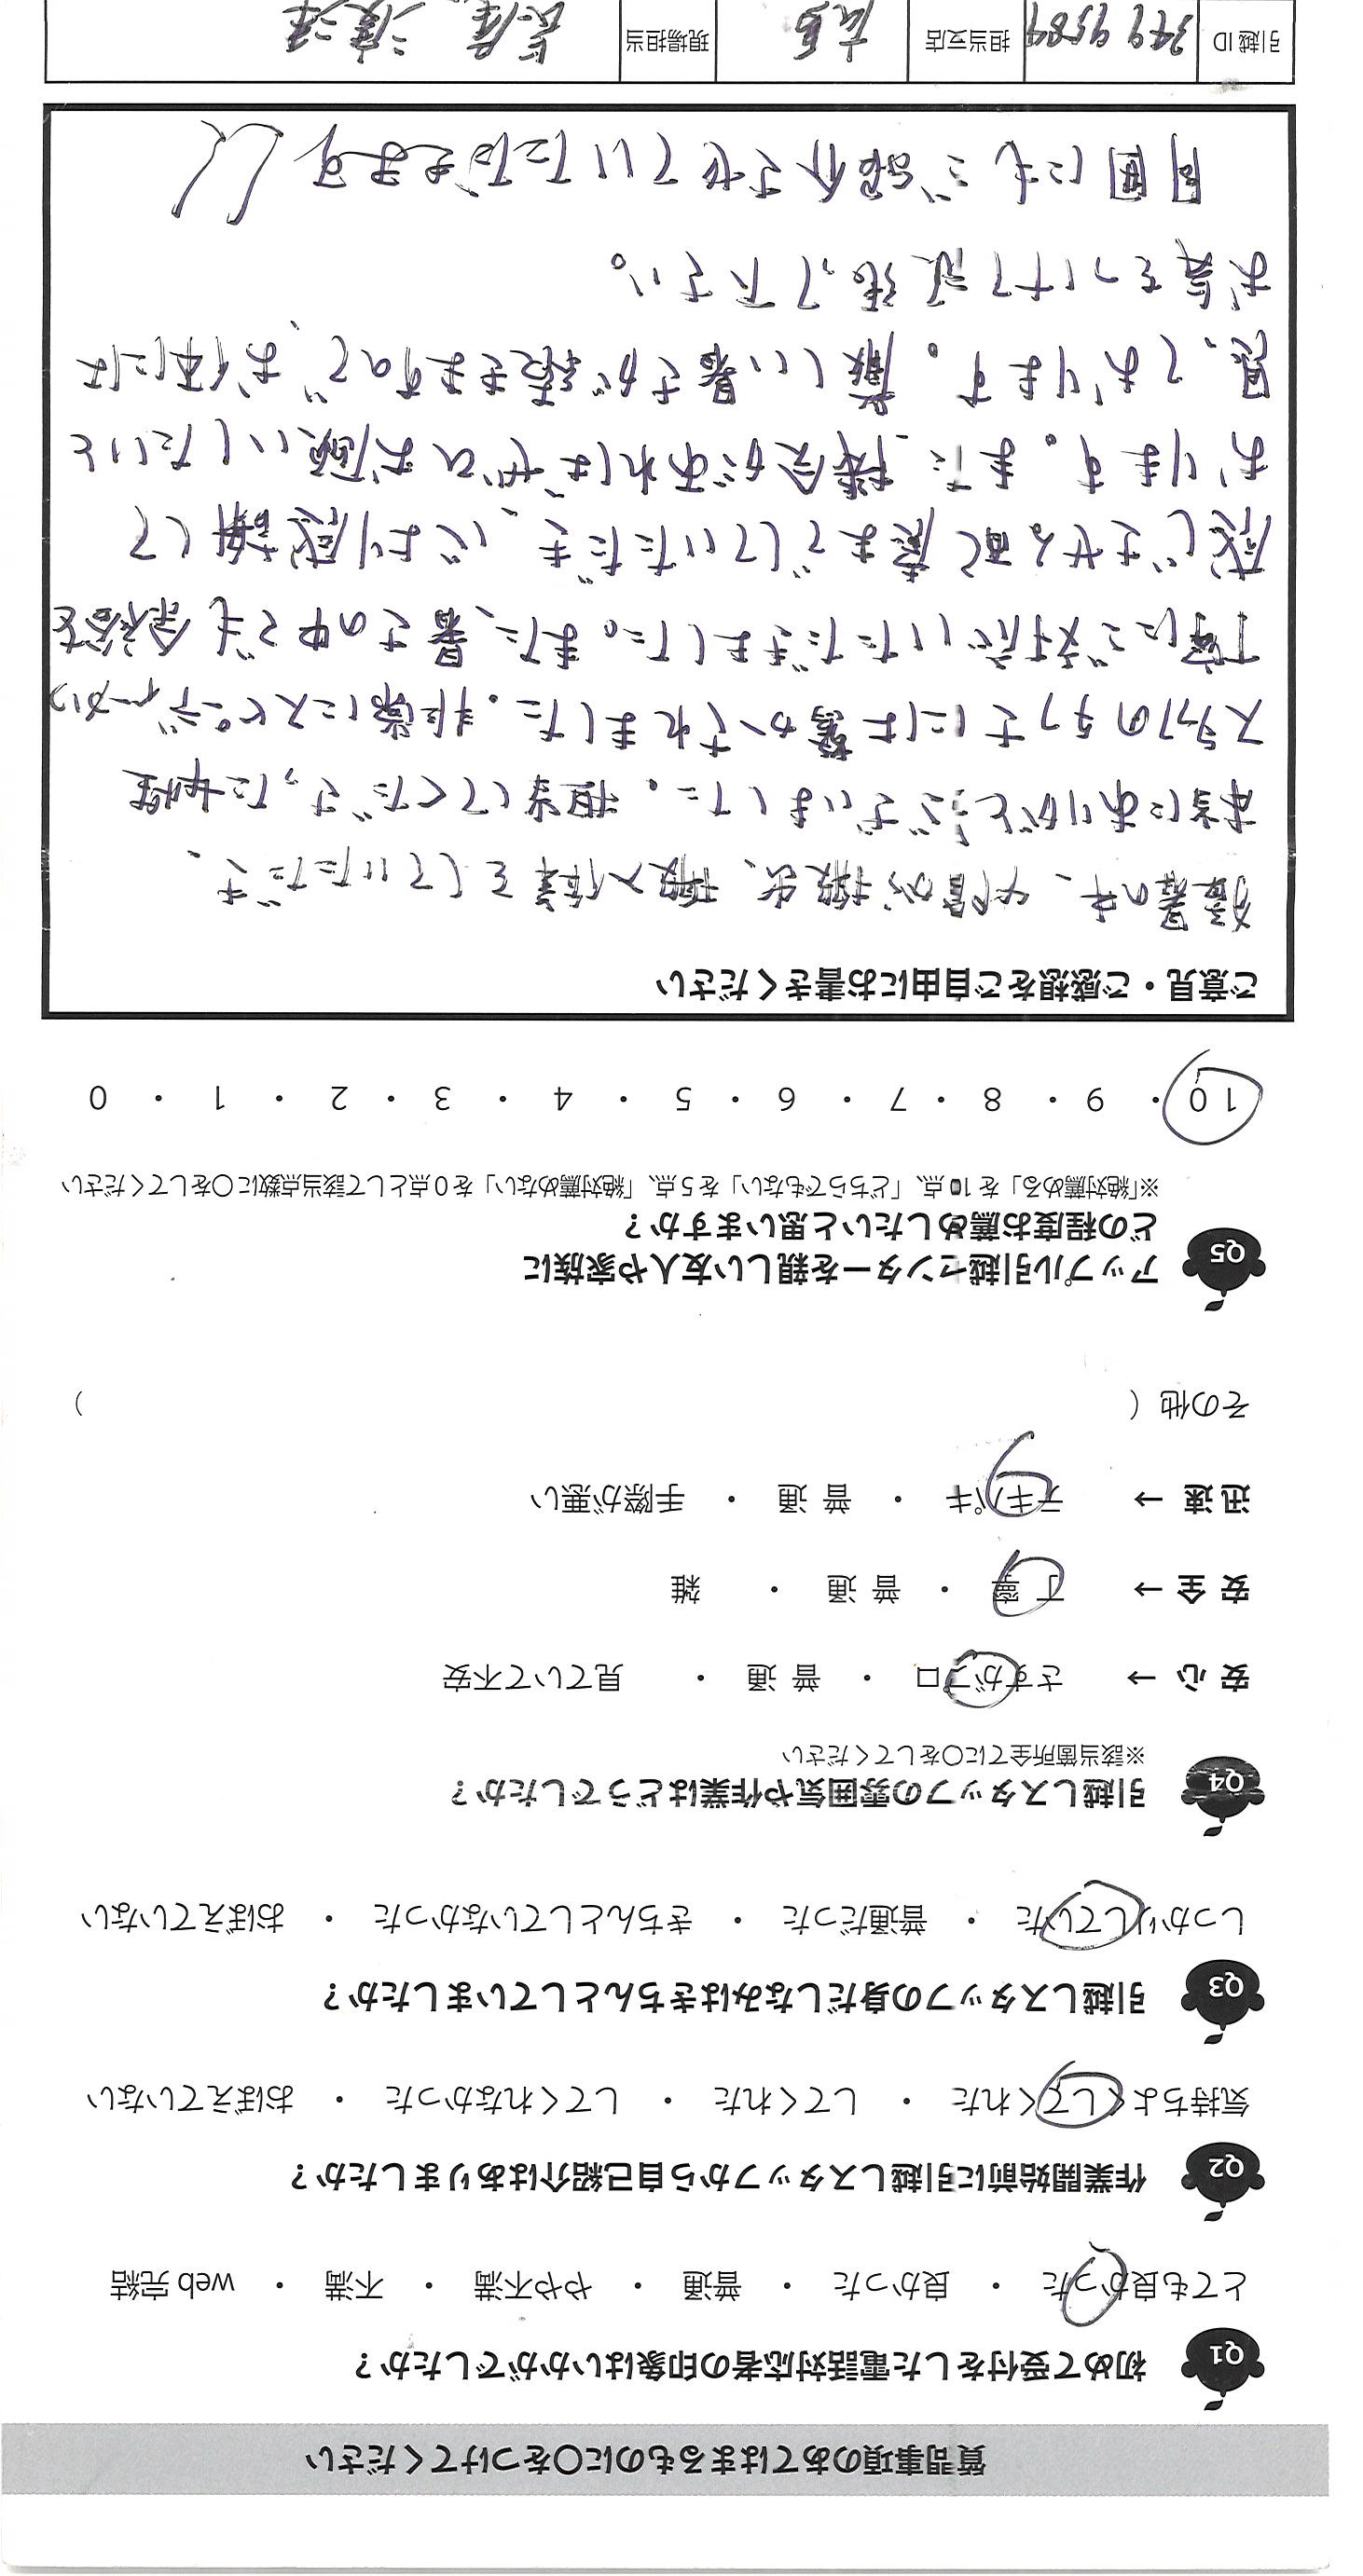 質問事項のあてはまるものに○をつけてください
Q1 初めて受付をした電話対応者の印象はいかがでしたか？
とても良かった ・ 良かった ・ 普通 ・ やや不満 ・ 不満 ・ web 完結
Q2 作業開始前に引越しスタッフから自己紹介はありましたか？
気持ちよくしてくれた ・ してくれた ・ してくれなかった ・ おぼえていない
Q3 引越しスタッフの身だしなみはきちんとしていましたか？
しっかりしていた ・ 普通だった ・ きちんとしていなかった ・ おぼえていない
Q4 引越しスタッフの雰囲気や作業はどうでしたか？
※該当箇所全てに○をしてください
安 心 → さすがプロ ・ 普 通 ・ 見ていて不安
安 全 → 丁 寧 ・ 普 通 ・ 雑
迅 速 → テキパキ ・ 普 通 ・ 手際が悪い
その他（ ）
Q5 アップル引越センターを親しい友人や家族に
どの程度お薦めしたいと思いますか？
※「絶対薦める」を10点、「どちらでもない」を5点、「絶対薦めない」を0点として該当点数に○をしてください
10 ・ 9 ・ 8 ・ 7 ・ 6 ・ 5 ・ 4 ・ 3 ・ 2 ・ 1 ・ 0
ご意見・ご感想をご自由にお書きください
猛暑の中、搬出、搬入作業をしていただき、
本当にありがとうございました。担当してくださった女性
スタッフのタフさには驚かされました。非常にスピーディーかつ
丁寧にご対応いただきました。また、暑さの中でも余裕を
感じさせる配慮までしていただき、心より感謝して
おります。また機会があればぜひお願いしたいと
思っております。厳しい暑さが続きますので、お体には
お気をつけて頑張って下さい。
周囲にもご紹介させていただきます
引越ID 3499589 担当支店 広島 現場担当 長屋、渡津